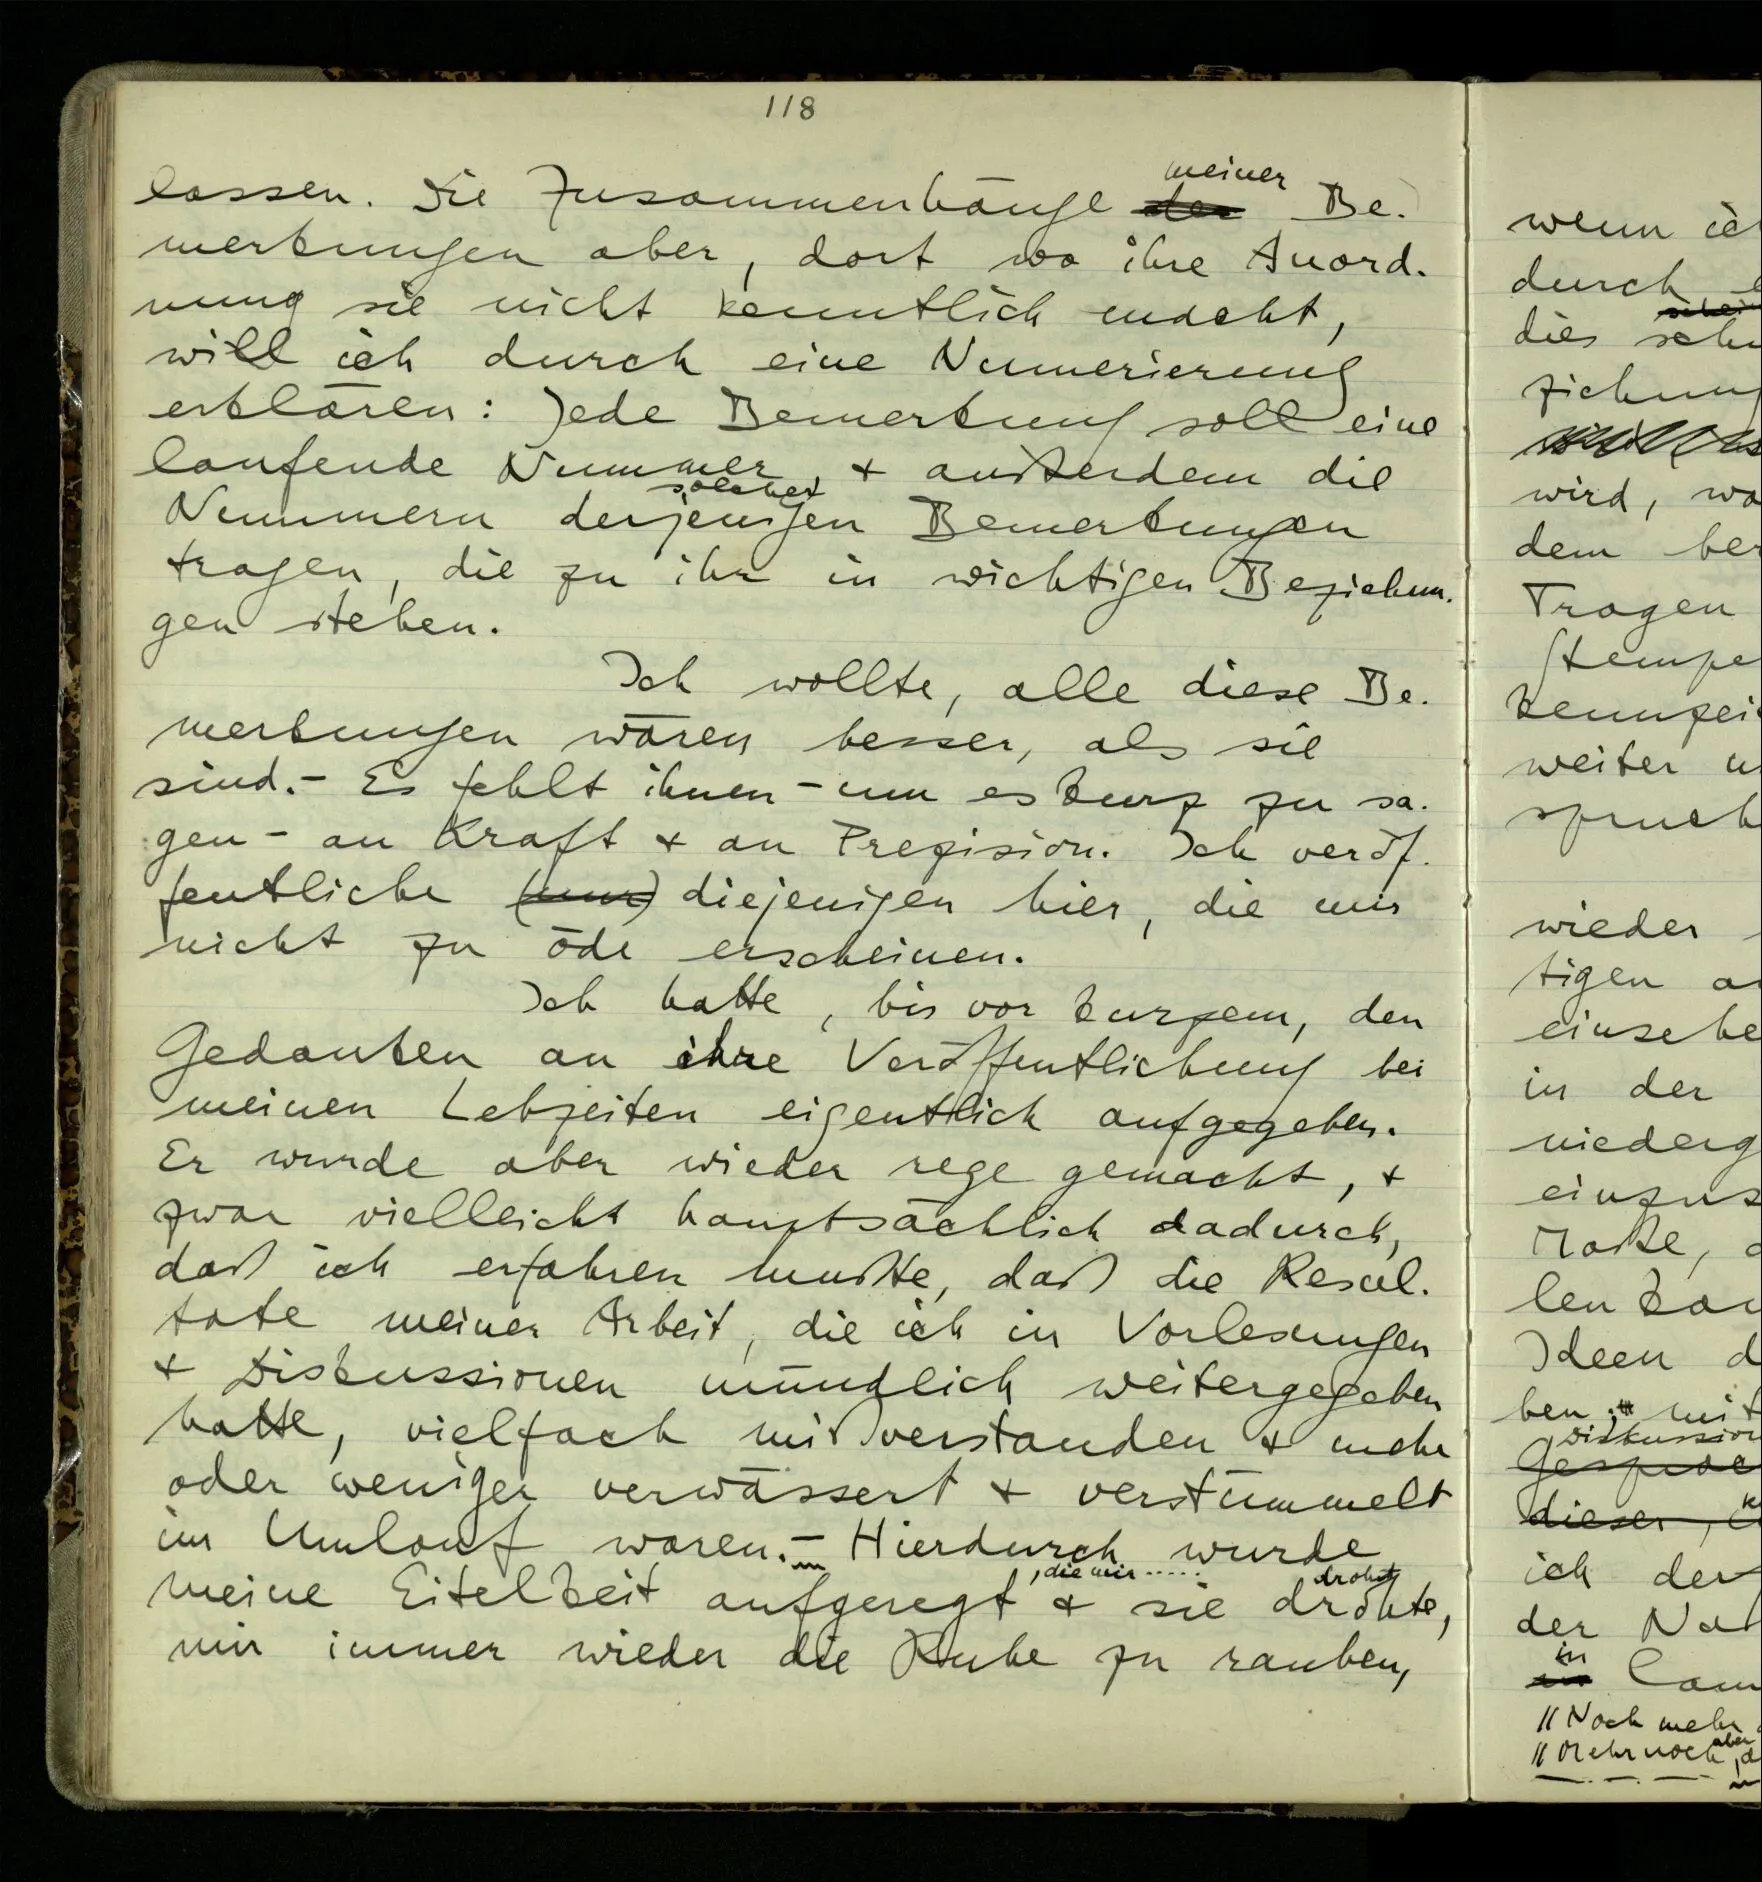 118
lassen. Die Zusammenhänge der meiner Be-
merkungen aber, dort wo ihre Anord-
nung sie nicht kenntlich macht,
will ich durch eine Numerierung
erklären: Jede Bemerkung soll eine
laufende Nummer & außerdem die
Nummern derjenigen solcher Bemerkungen
tragen, die zu ihr in wichtigen Beziehun-
gen stehen.
Ich wollte, alle diese Be-
merkungen wären besser, als sie
sind.– Es fehlt ihnen – um es kurz zu sa-
gen – an Kraft & an Prezision. Ich veröf-
fentliche (nur) diejenigen hier, die mir
nicht zu öde erscheinen.
Ich hatte, bis vor kurzem, den
Gedanken an ihre Veröffentlichung bei
meinen Lebzeiten eigentlich aufgegeben.
Er wurde aber wieder rege gemacht, &
zwar vielleicht hauptsächlich dadurch,
daß ich erfahren mußte, daß die Resul-
tate meiner Arbeit, die ich in Vorlesungen
& Diskussionen mündlich weitergegeben
hatte, vielfach mißverstanden & mehr
oder weniger verwässert & verstümmelt
im Umlauf waren.– Hierdurch wurde
, die mir ..... droht
meine Eitelkeit aufgeregt & sie drohte,
mir immer wieder die Ruhe zu rauben,
wenn ich
durch
dies
wird,
dem
Tragen
weiter
spruch
wieder
tigen
in der
Ideen
ben; mit
Diskussion
dieser,
ich
der
in
in
// Noch mehr
// Mehr noch aber